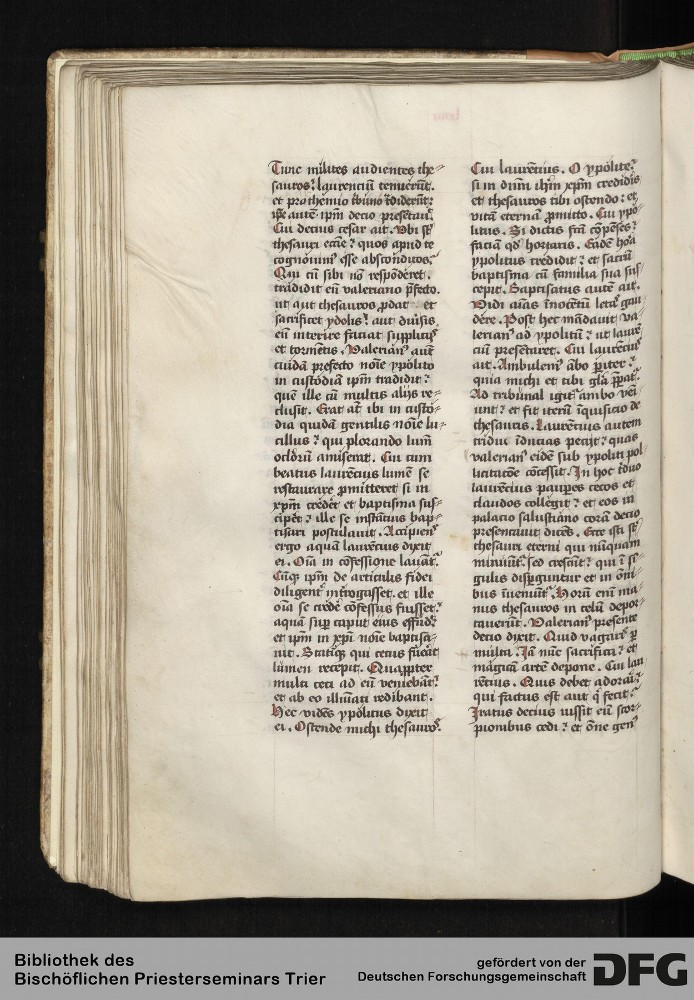 Tunc milites audientes the⸗
sauros laurenciū tenuerūt.
et prothemio tbuno tdiderūt:
ipe autē ipm decio presētaū.
Cui decius cesar ait. Vbi sūt
thesauri ecrie: quos apud te
cognouimꝰ esse absconditos.
Qui cū sibi nō respōderet.
tradidit eū valeriano pfecto.
ut aut thesauros pdat et
sacrificet ydolis: aut diuisis
eū interire faciat suppliciis
et tormētis. Valerianꝰ autē
cuidā prefecto noīe ypolito
in custodiā ipm tradidit:
quē ille cū multis aliis re⸗
clusit. Erat at ibi in custo⸗
dia quidā gentilis noīe lu⸗
cillus: qui plorando lumē
oclorū amiserat. Cui cum
beatus laurēcius lumē se
restaurare pmitteret si in
xpm crederet et baptisma sus⸗
ciperet: ille se instācius bap⸗
tisari postulauit. Accipiens
ergo aquā laurēcius dixit
ei. Oīa in cōfessione lauāt.
Cūqꝫ ipm de articulis fidei
diligent introgasset. et ille
oīa se credē cōfessus fuisset.
aquā sup caput eius effudit
et ipm in xpi noīe baptisa⸗
uit. Statiqꝫ qui cecus fuerat
lumen recepit. Quapropter
multi ceci ad eū veniebāt:
et ab eo illuīati redibant.
Hec vidēs ypolitus dixit
ei. Ostende michi thesauros.
Cui laurētius. O ypolite:
si in dnm ihm xpm credidis
et thesauros tibi ostendo: et
vitā eternā pmitto. Cui ypo⸗
litus. Si dictis fca cōpēses:
faciā qd hortaris. Eadē hora
ypolitus credidit: et sacrū
baptisma cū familia sua sus⸗
cepit. Baptisatus autē ait.
Vidi aīas inocētū letas gau
dere. Post hec mādauit va⸗
lerianꝰ ad ypolitū: ut laurē
ciū presētaret. Cui laurēciꝰ
ait. Ambulemꝰ abo pariter:
quia michi et tibi glā pparat.
Ad tribunal igit ambo veni
unt: et fit iterū iquisicio de
thesauris. Laurēcius autem
triduo iducias petijt: quas
valerianꝰ eidē sub ypoliti pol⸗
licitacōe cōcessit. In hoc triduo
laurēcius pauperes cecos et
claudos collegit: et eos in
palacio salustiano corā decio
presentauit dicēs. Ecce isti sūt
thesauri eterni qui nūquam
minuūt. sed crescūt: qui i si⸗
gulis disperguntur et in oīi⸗
bus iueniūt. Horū enī ma⸗
nus thesauros in celū depor⸗
tauerūt. Valerianꝰ presente
decio dixit. Quid vagaris p
multa. Iā nūc sacrifica: et
magicā artē depone. Cui lau
rētius. Quis debet adorari:
qui factus est aut q fecit.
Iratus decius iussit eū scor⸗
pionibus cedi: et ōne genꝰ
Bibliothek des
Bischöflichen Priesterseminars Trier
gefördert von der
Deutschen Forschungsgemeinschaft
DFG